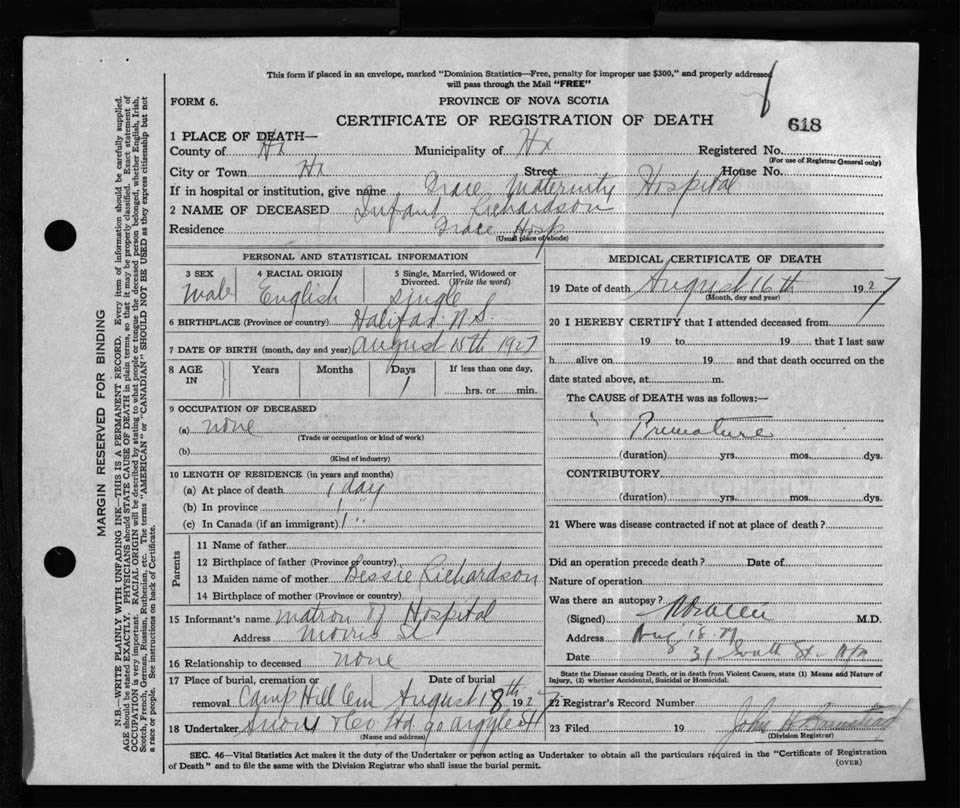 This form if placed in an envelope, marked "Dominion Statistics—Free, penalty for improper use $300," and properly addressed
will pass through the Mail "FREE"
FORM 6.
PROVINCE OF NOVA SCOTIA
CERTIFICATE OF REGISTRATION OF DEATH
618
1 PLACE OF DEATH—
County of Hx Municipality of Hx Registered No.
(For use of Registrar General only)
City or Town Hx Street House No.
If in hospital or institution, give name Grace Maternity Hospital
2 NAME OF DECEASED Infant Richardson
Residence Grace Hosp
(Usual place of abode)
PERSONAL AND STATISTICAL INFORMATION
3 SEX 4 RACIAL ORIGIN 5 Single, Married, Widowed or
Divorced. (Write the word)
Male English Single
6 BIRTHPLACE (Province or country) Halifax N.S.
7 DATE OF BIRTH (month, day and year) August 15th 1927
8 AGE IN Years Months Days If less than one day,
1 hrs. or min.
9 OCCUPATION OF DECEASED
(a) none
(Trade or occupation or kind of work)
(b)
(Kind of industry)
10 LENGTH OF RESIDENCE (in years and months)
(a) At place of death 1 day
(b) In province 1 "
(c) In Canada (if an immigrant) 1 "
Parents
11 Name of father
12 Birthplace of father (Province or country)
13 Maiden name of mother Bessie Richardson
14 Birthplace of mother (Province or country)
15 Informant's name Matron of Hospital
Address Morris St
16 Relationship to deceased none
17 Place of burial, cremation or Date of burial
removal Camp Hill Cem August 18th 1927
18 Undertaker Snow & Co Ltd 90 Argyle St
(Name and address)
MEDICAL CERTIFICATE OF DEATH
19 Date of death August 16th 1927
(Month, day and year)
20 I HEREBY CERTIFY that I attended deceased from
19 to 19 that I last saw
h alive on 19 and that death occurred on the
date stated above, at m.
The CAUSE of DEATH was as follows:—
Premature
(duration) yrs. mos. dys.
CONTRIBUTORY
(duration) yrs. mos. dys.
21 Where was disease contracted if not at place of death?
Did an operation precede death? Date of
Nature of operation
Was there an autopsy?
(Signed) M.D.
Address Aug 18.27
Date 31 South St
State the Disease causing Death, or in death from Violent Causes, state (1) Means and Nature of
Injury, (2) whether Accidental, Suicidal or Homicidal.
22 Registrar's Record Number
23 Filed 19 John H
(Division Registrar)
SEC. 46—Vital Statistics Act makes it duty of the Undertaker or person acting as Undertaker to obtain all the particulars required in the "Certificate of Registration
of Death" and to file the same with the Division Registrar who shall issue the burial permit.
(OVER)
MARGIN RESERVED FOR BINDING
N.B.—WRITE PLAINLY WITH UNFADING INK—THIS IS A PERMANENT RECORD. Every item of information should be carefully supplied.
AGE should be stated EXACTLY. PHYSICIANS should STATE CAUSE OF DEATH in plain terms, so that it may be properly classified. Exact statement of
OCCUPATION is very important. RACIAL ORIGIN will be described by stating to what people or tongue the deceased person belonged, whether English, Irish,
Scotch, French, German, Russian, Ruthenian, etc. The terms "AMERICAN" or "CANADIAN" SHOULD NOT BE USED as they express citizenship but not
a race or people. See instructions on back of Certificate.